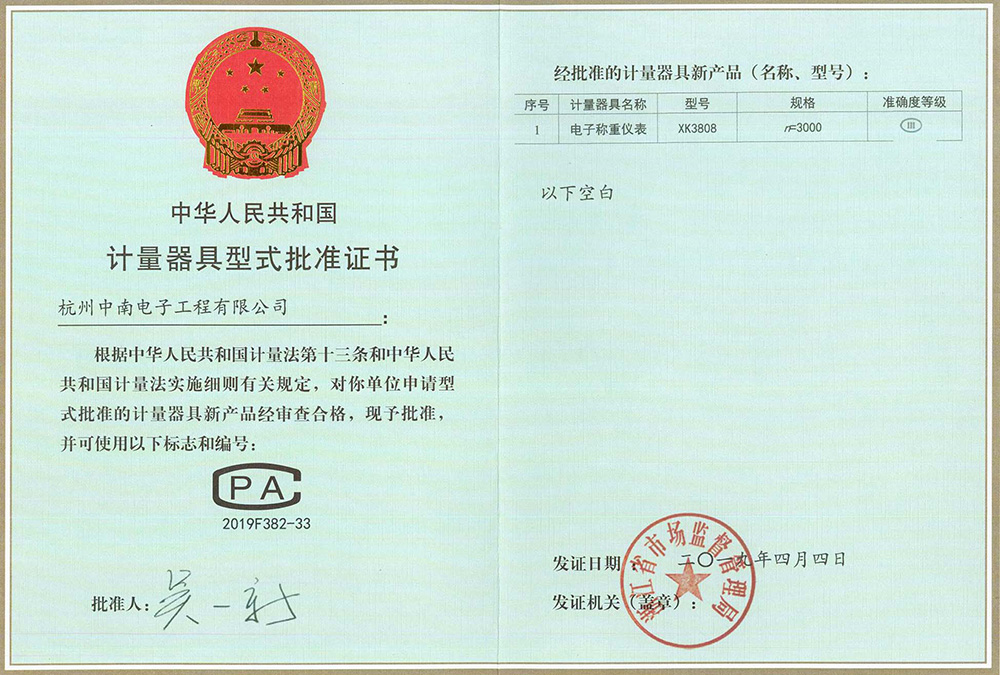 中华人民共和国
计量器具型式批准证书
杭州中南电子工程有限公司：
根据中华人民共和国计量法第十三条和中华人民
共和国计量法实施细则有关规定，对你单位申请型
式批准的计量器具新产品经审查合格，现予批准，
并可使用以下标志和编号：
CPA
2019F382-33
批准人：
经批准的计量器具新产品（名称、型号）：
序号 计量器具名称 型号 规格 准确度等级
1 电子称重仪表 XK3808 n=3000 Ⅲ
以下空白
浙江省市场监督管理局
发证日期：二〇一九年四月四日
发证机关（盖章）：